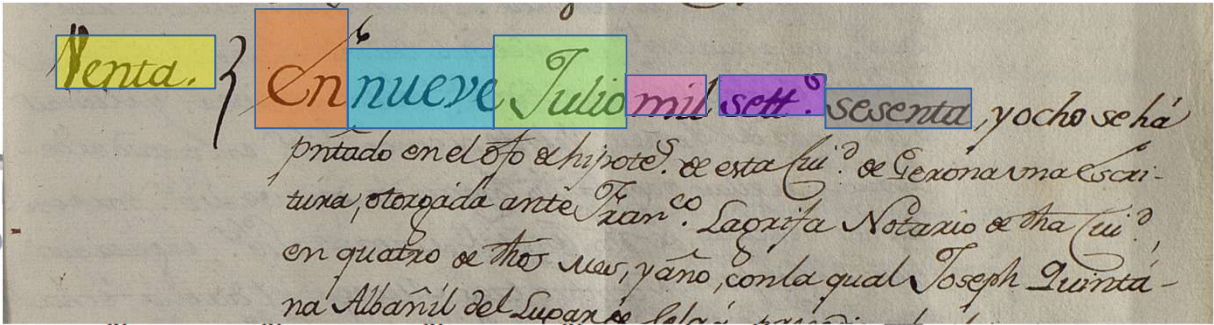 Venta. En nueve Julio mil sett.ˢ sesenta, y ocho se há
pntado en el ofo de hipote.ˢ de esta Ciu.ᵈ de Gerona una Escri-
tura, otorgada ante Fran.ᶜᵒ Lagrifa Notario de dha Ciu.ᵈ,
en quatro de dhos mes, y año, con la qual Joseph Quintá-
na Albañil del Lugar de